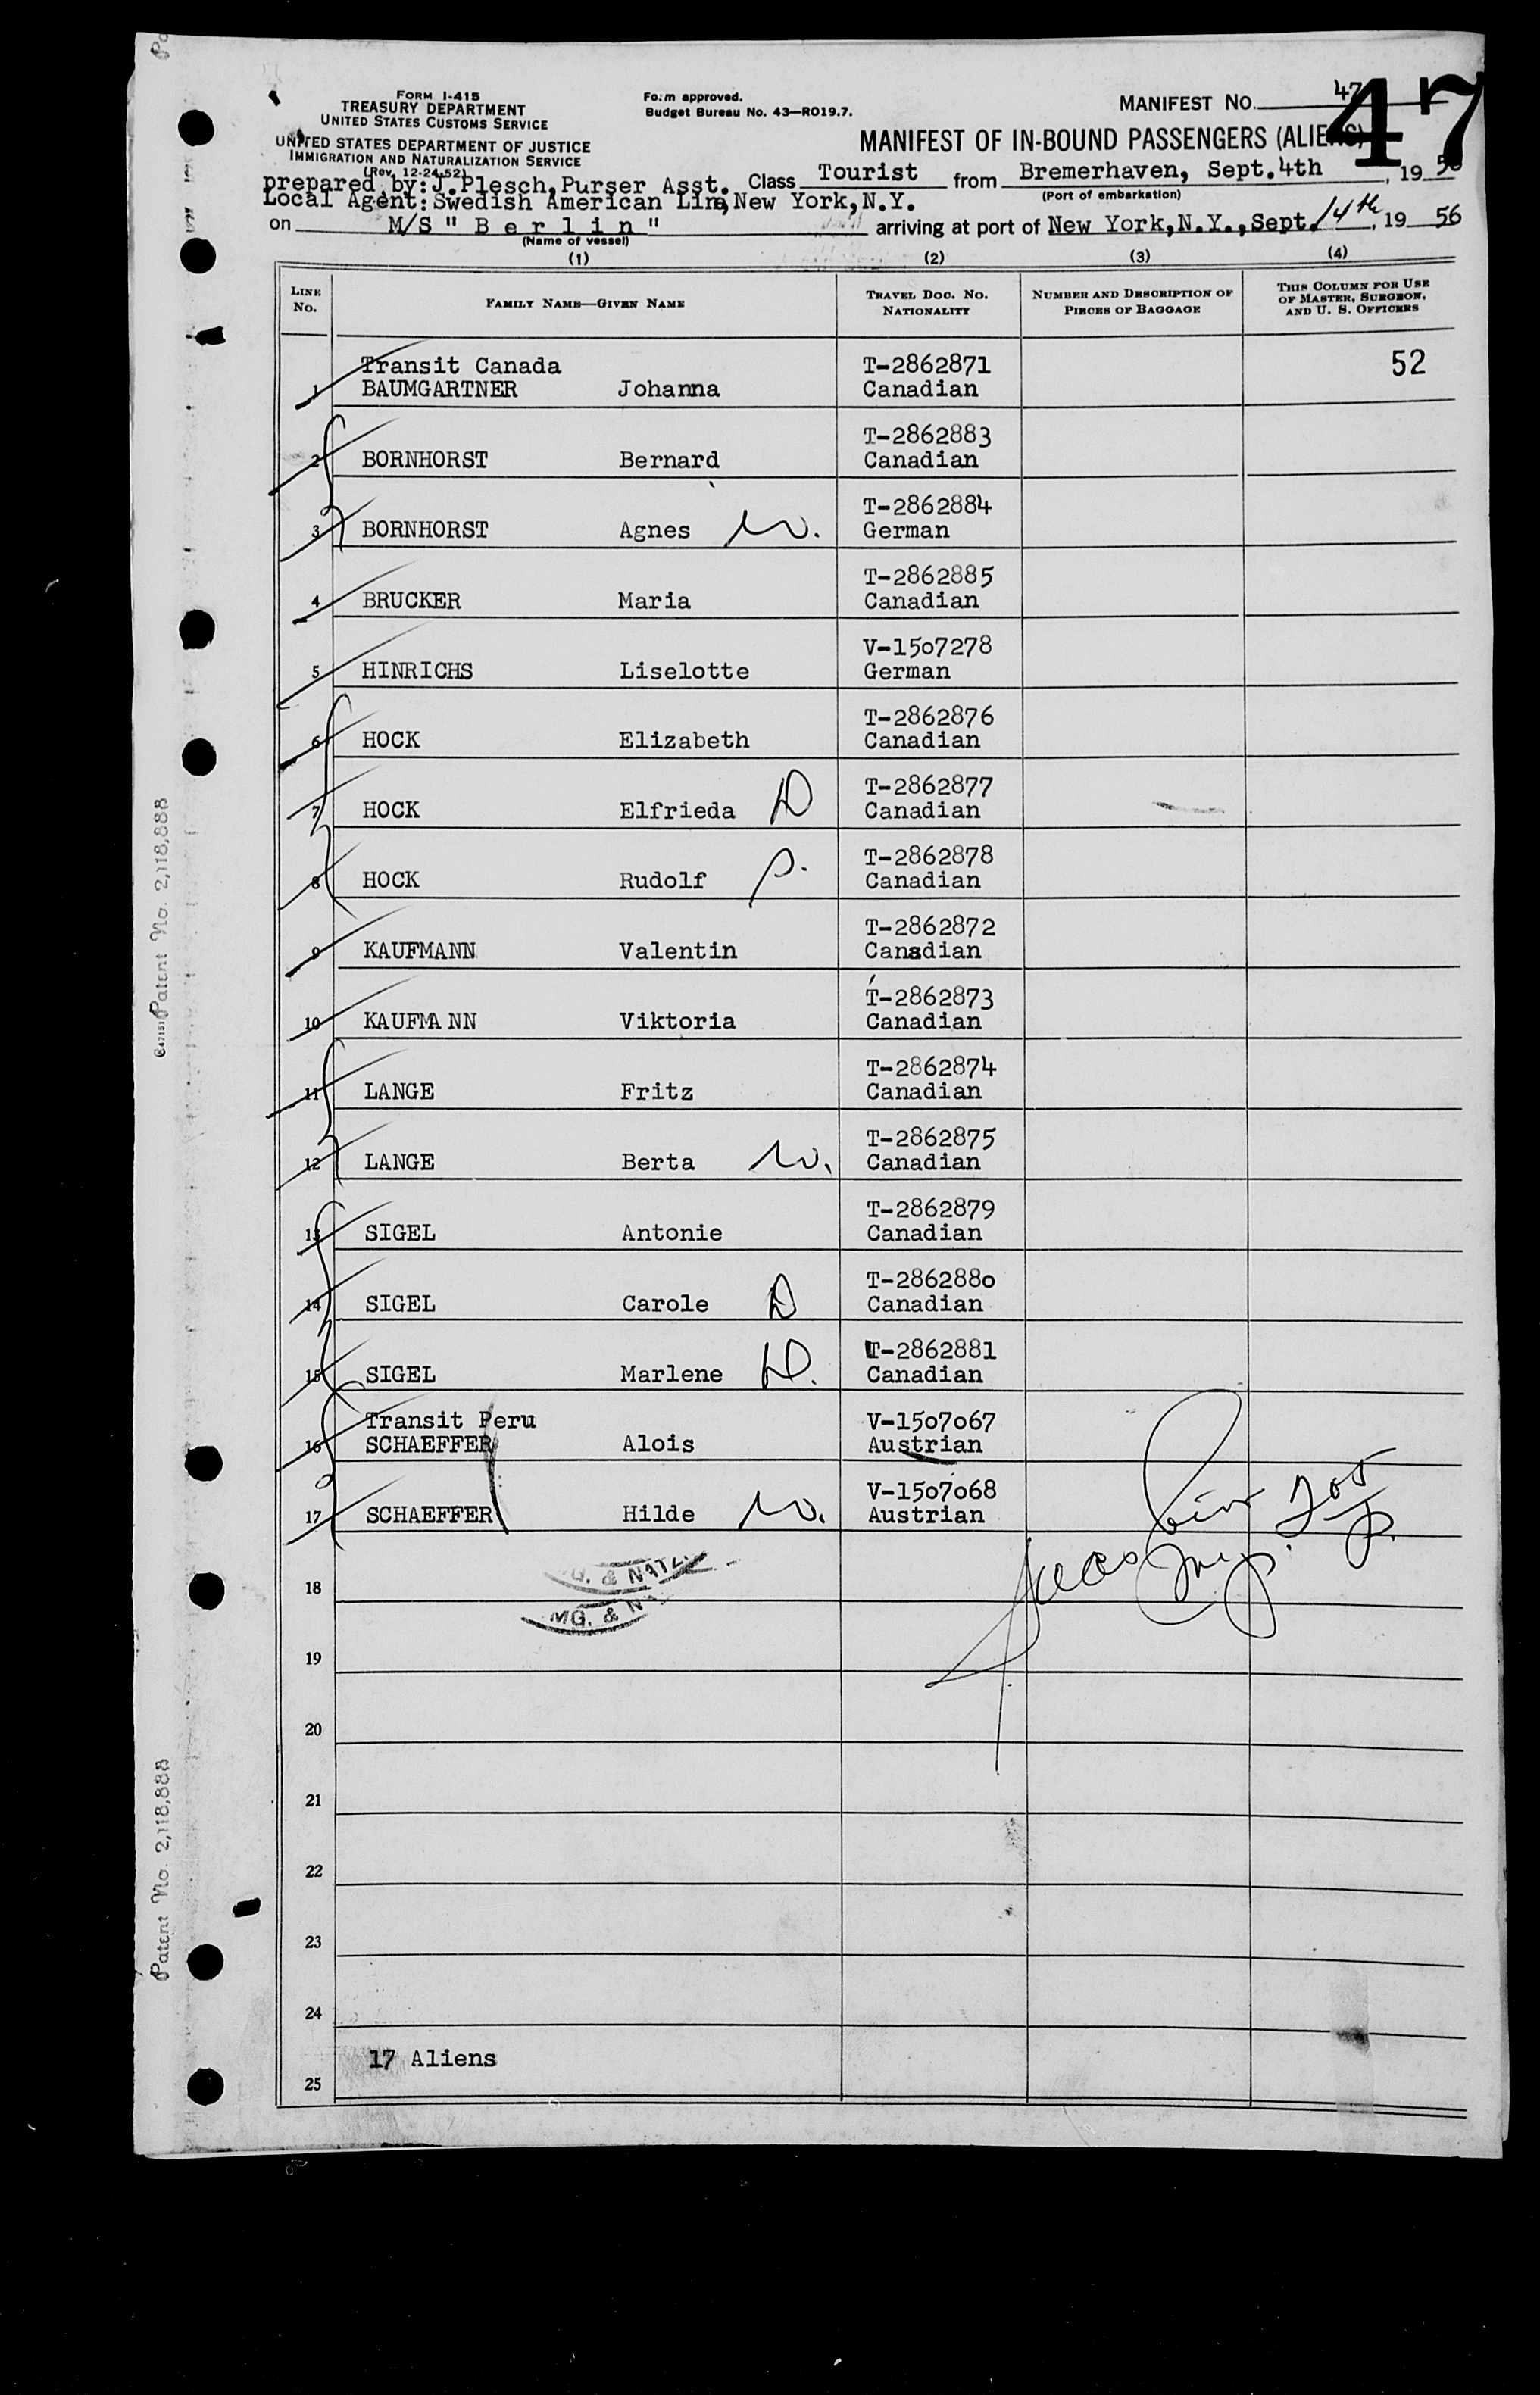 47
FORM I-415
TREASURY DEPARTMENT
UNITED STATES CUSTOMS SERVICE
UNITED STATES DEPARTMENT OF JUSTICE
IMMIGRATION AND NATURALIZATION SERVICE
(Rev. 12-24-52)
Form approved.
Budget Bureau No. 43—RO19.7.
MANIFEST NO. 47
MANIFEST OF IN-BOUND PASSENGERS (ALIENS)
prepared by: J. Plesch, Purser Asst. Class Tourist from Bremerhaven, Sept. 4th, 1956
(Port of embarkation)
Local Agent: Swedish American Line, New York, N.Y.
on M/S " B e r l i n " arriving at port of New York, N.Y., Sept. 14th, 19 56
(Name of vessel)
(1) (2) (3) (4)
LINE NO. FAMILY NAME—GIVEN NAME TRAVEL DOC. NO. NATIONALITY NUMBER AND DESCRIPTION OF PIECES OF BAGGAGE THIS COLUMN FOR USE OF MASTER, SURGEON, AND U. S. OFFICERS
Transit Canada T-2862871 52
1 BAUMGARTNER Johanna Canadian
T-2862883
2 BORNHORST Bernard Canadian
T-2862884
3 BORNHORST Agnes W. German
T-2862885
4 BRUCKER Maria Canadian
V-1507278
5 HINRICHS Liselotte German
T-2862876
6 HOCK Elizabeth Canadian
T-2862877
7 HOCK Elfrieda D Canadian
T-2862878
8 HOCK Rudolf S. Canadian
T-2862872
9 KAUFMANN Valentin Canadian
T-2862873
10 KAUFMANN Viktoria Canadian
T-2862874
11 LANGE Fritz Canadian
T-2862875
12 LANGE Berta W. Canadian
T-2862879
13 SIGEL Antonie Canadian
T-2862880
14 SIGEL Carole D Canadian
T-2862881
15 SIGEL Marlene D. Canadian
Transit Peru V-1507067
16 SCHAEFFER Alois Austrian
V-1507068
17 SCHAEFFER Hilde W. Austrian
G. & NATZ.
18
MG. & N
19
20
21
22
23
24
17 Aliens
25
Patent No. 2,118,888
Patent No. 2,118,888